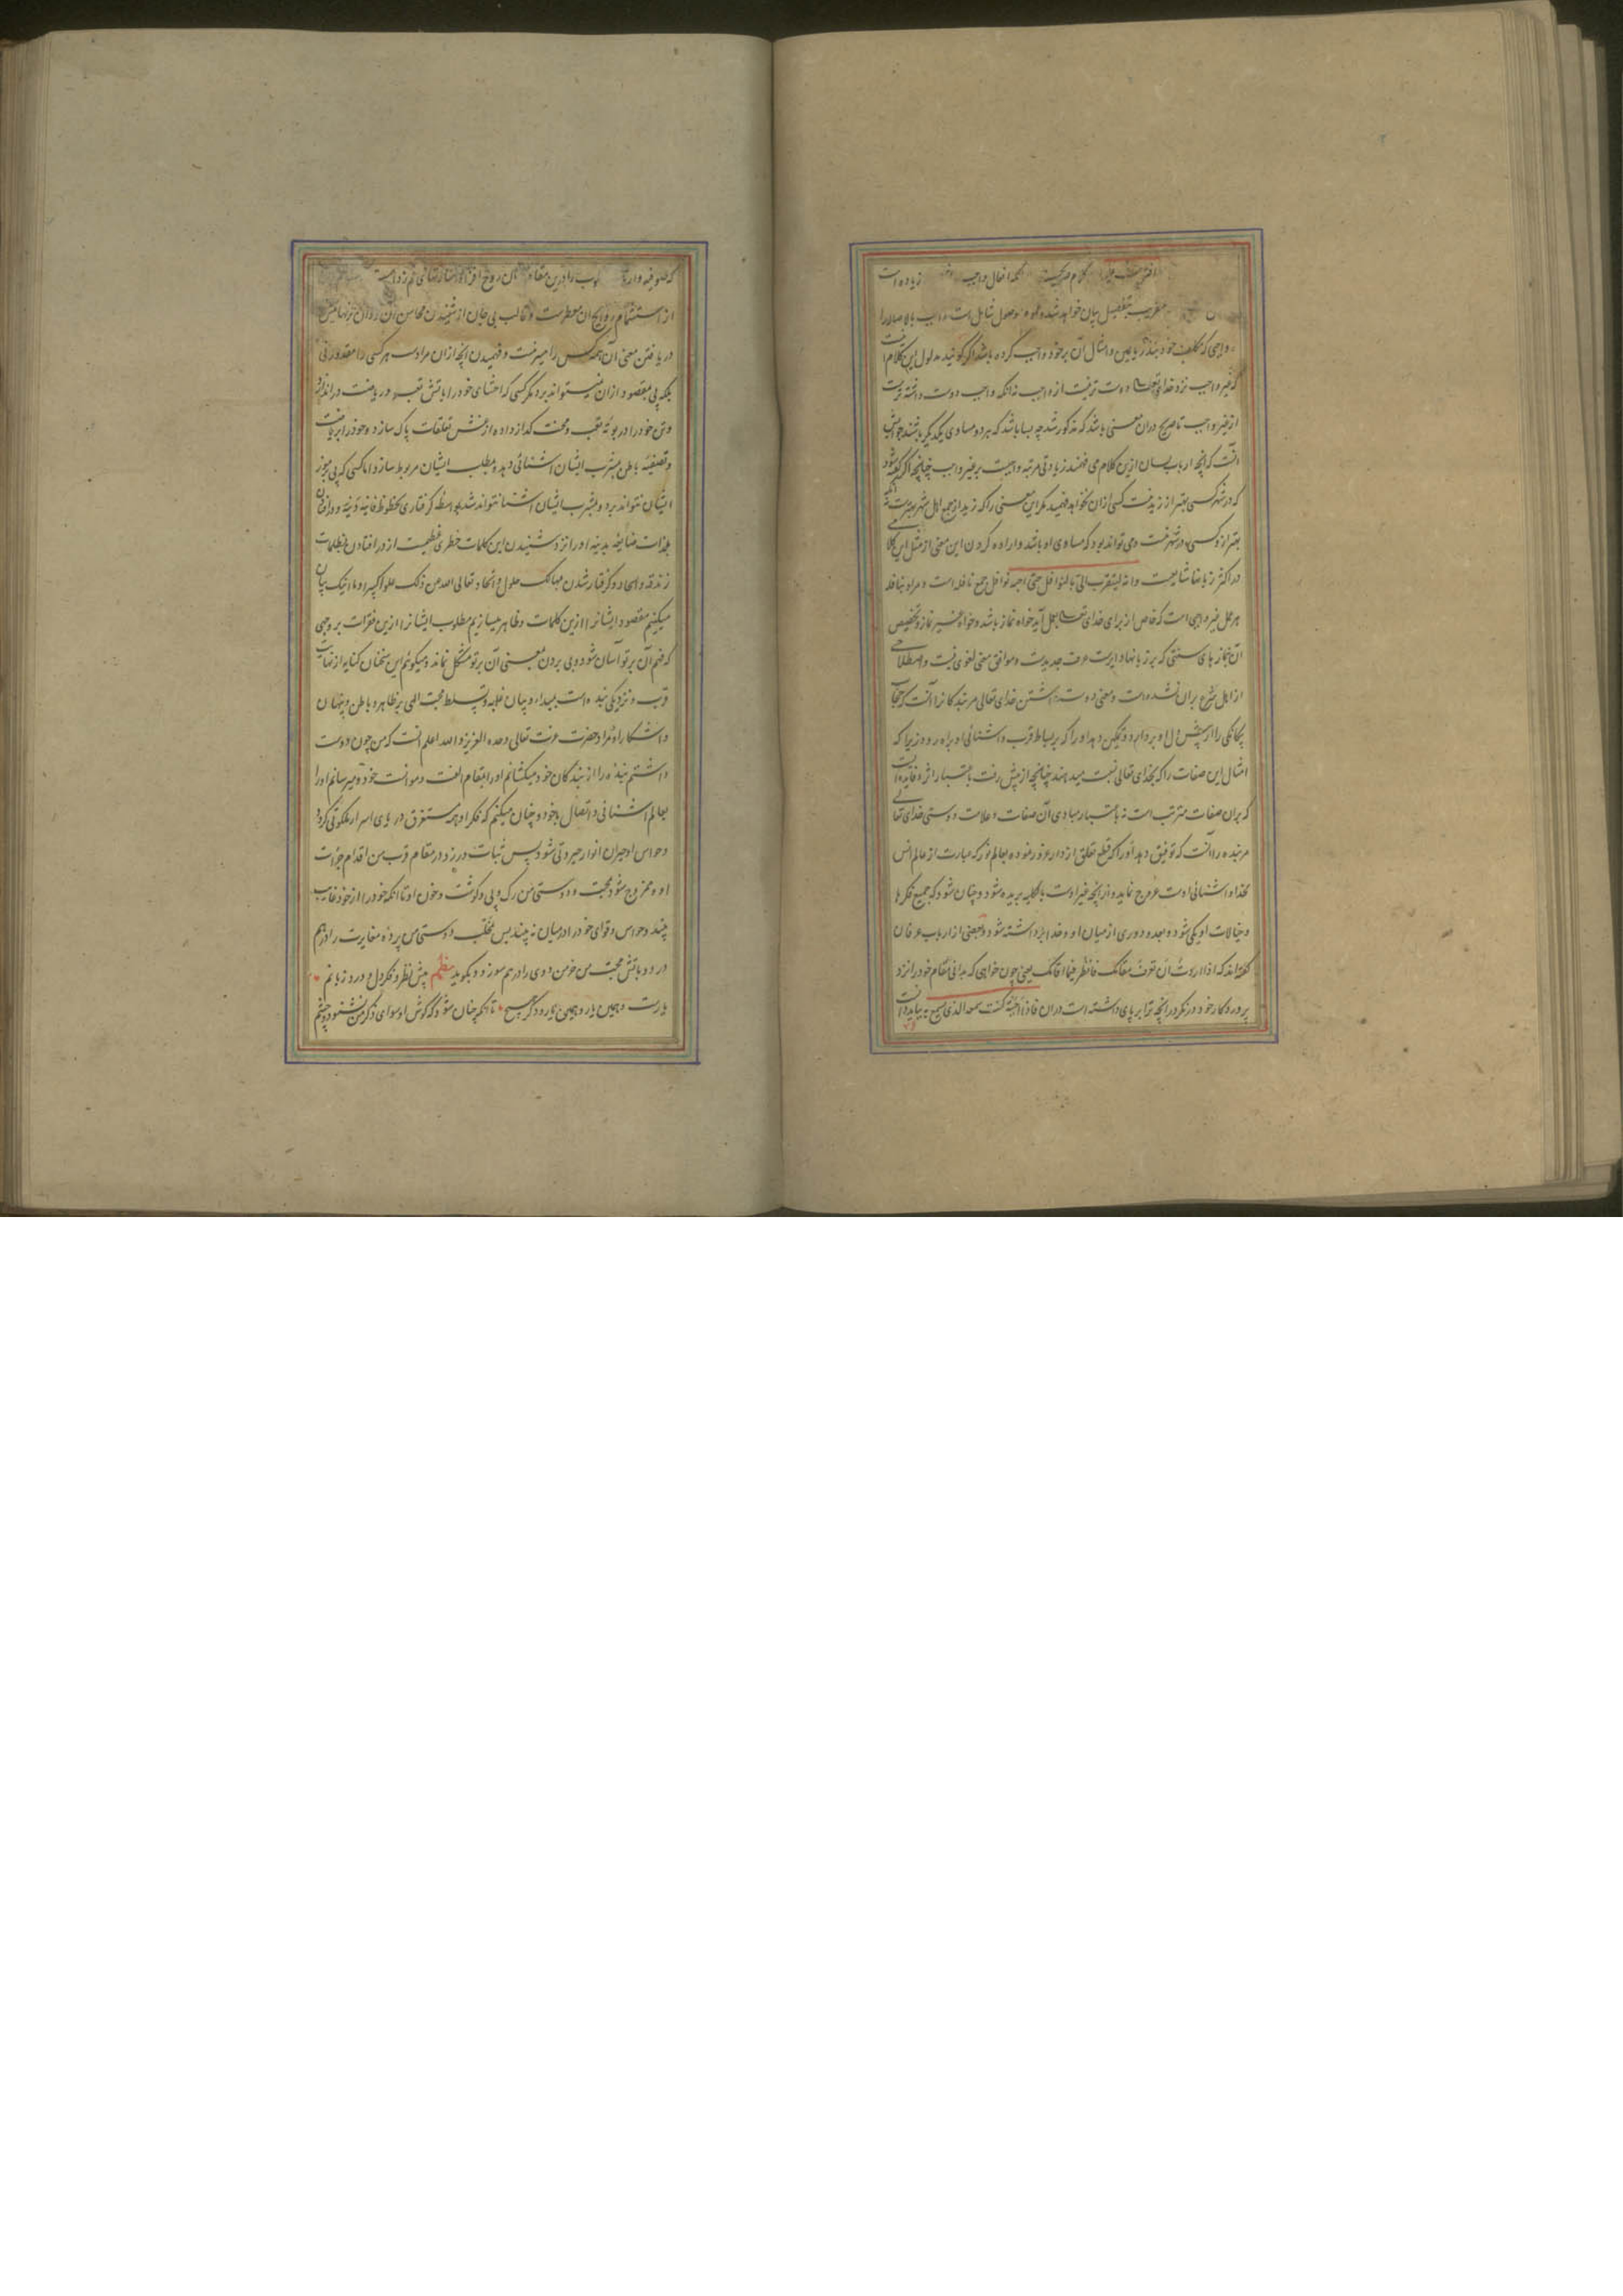 کلام صریحیست که افعال واجب زیاده است
عنقریب بتفصیل بیان خواهد شد و وصول شامل است واجب بالاصاله را
و واجبی که مکلف خود بنذر یا یمین و امثال آن بر خود واجب کرده باشد اگر گویند مدلول این کلام آنست
که غیر واجب نزد خدای تعالی دوست تر نیست از واجب نه آنکه واجب دوست داشته ترست
از غیر واجب تا صریح در آن معنی باشد که مذکور شد چه بسا باشد که هر دو مساوی یکدیگر باشند جوابش
آنست که آنچه ارباب لسان ازین کلام می فهمند زیادتی مرتبه واجبست بر غیر واجب چنانچه اگر گفته شود
که در شهر کسی بهتر از زید نیست کسی ازان نخواهد فهمید مگر این معنی را که زید از جمیع اهل شهر بهترست نه آنکه
بهتر ازو کسی در شهر نیست و می تواند بود که مساوی او باشد و اراده کردن این معنی از مثل این کلام
در اکثر زبانها شایعست وانه لیتقرب الی بالنوافل حتی احبه نوافل جمع نافله است و مراد بنافله
هر عمل غیر واجبی است که خاص از برای خدای تعالی بعمل آید خواه نماز باشد و خواه غیر نماز و تخصیص
آن بنماز های سنتی که بر زبانها دایرست عرف جدیدست و موافق معنی لغوی نیست و اصطلاحی
از اهل شرع بران نشده است و معنی دوست داشتن خدای تعالی مر بندگانرا آنست که حجاب
بیگانگی را از پیش دل او بردارد و تمکین دهد او را که بر بساط قرب و آشنائی او راه رود زیرا که
امثال این صفات را که بخدای تعالی نسبت میدهند چنانچه از پیش رفت باعتبار اثر و فایده ایست
که بران صفات مترتب است نه باعتبار مبادی آن صفات و علامت دوستی خدای تعالی
مر بنده را آنست که توفیق دهد او را که قطع تعلق از دار غرور نموده بعالم نور که عبارت از عالم انس
بخدا و آشنائی اوست عروج نماید و از آنچه غیر اوست بالکلیه بریده شود و چنان شود که جمیع فکرها
و خیالات او یکی شود و بعد و دوری از میان او و خدا برداشته شود و بعضی از ارباب عرفان
گفته اند که اذا اردت ان تعرف مقامک فانظر فیما اقامک یعنی چون خواهی که بدانی مقام خود را نزد
پروردگار خود در نگر در آنچه ترا بر پای داشته است در آن فاذا احببته کنت سمعه الذی یسمع به بباید دانست
که صوفیه را درین مقام سخنان روح افزا و اشارتهای
از استشمام روایح آن معطرست و قالب بی جان از شنیدن محاسن آن
دریافتن معنی آن همه کس را میسر نیست و فهمیدن آنچه ازان مرادست هر کسی را مقدور نی
بلکه پی بمقصود ازان نمیتواند برد مگر کسی که احشای خود را بآتش تعب و ریاضت در اندازد
و تن خود را در بوته تعب و محنت گداز داده از غش تعلقات پاک سازد و خود را بریاضت
و تصفیه باطن بمشرب ایشان آشنائی دهد و بمطلب ایشان مربوط سازد اما کسی که پی برموز
ایشان نتواند برد و بمشرب ایشان آشنا نتواند شد بواسطه گرفتاری بحظوظ فانیه دنیه و
بلذات بدنیه او را نزد شنیدن این کلمات خطری عظیمست از در افتادن بظلمات
زندقه و الحاد و گرفتار شدن بمهالک حلول و اتحاد تعالی الله من ذلک علوا کبیرا و ما اینک بیان
میکنیم مقصود ایشانرا ازین کلمات و ظاهر میسازیم مطلوب ایشانرا ازین فقرات بر وجهی
که فهم آن بر تو آسان شود و پی بردن بمعنی آن بر تو مشکل نماند و میگوئیم این سخنان کنایه از نهایت
قرب و نزدیکی بنده است بمبدا و بیان غلبه و تسلط محبت الهی بر ظاهر و باطن و پنهان
و آشکارا و مراد حضرت عزت تعالی وحده العزیز و الله اعلم آنست که من چون دوست
داشتم بنده را از بندگان خود میکشانم او را بمقام الفت و موانست خود و میرسانم او را
بعالم آشنائی و اتصال باخود و چنان میکنم که فکر او مستغرق در دریای اسرار ملکوتی گردد
و حواس او حیران انوار جبروتی شود پس ثبات ورزد در مقام قرب من اقدام جرأت
او و ممزوج شود محبت و دوستی من رگ و پی و گوشت و خون او تا آنکه خود را از خود غایب
بیند و حواس و قوای خود را در میان نه بیند پس دوستی من پرده مغایرت را در هم
درد و بآتش محبت من خرمن دوی را در هم سوزد و بگوید نظم پیش نظر و فکر دل و ورد زبانم
یارست و همین یار و همین یار و دگر هیچ تا آنکه چنان شود که گوش او سوای ذکر من نشنود و چشم